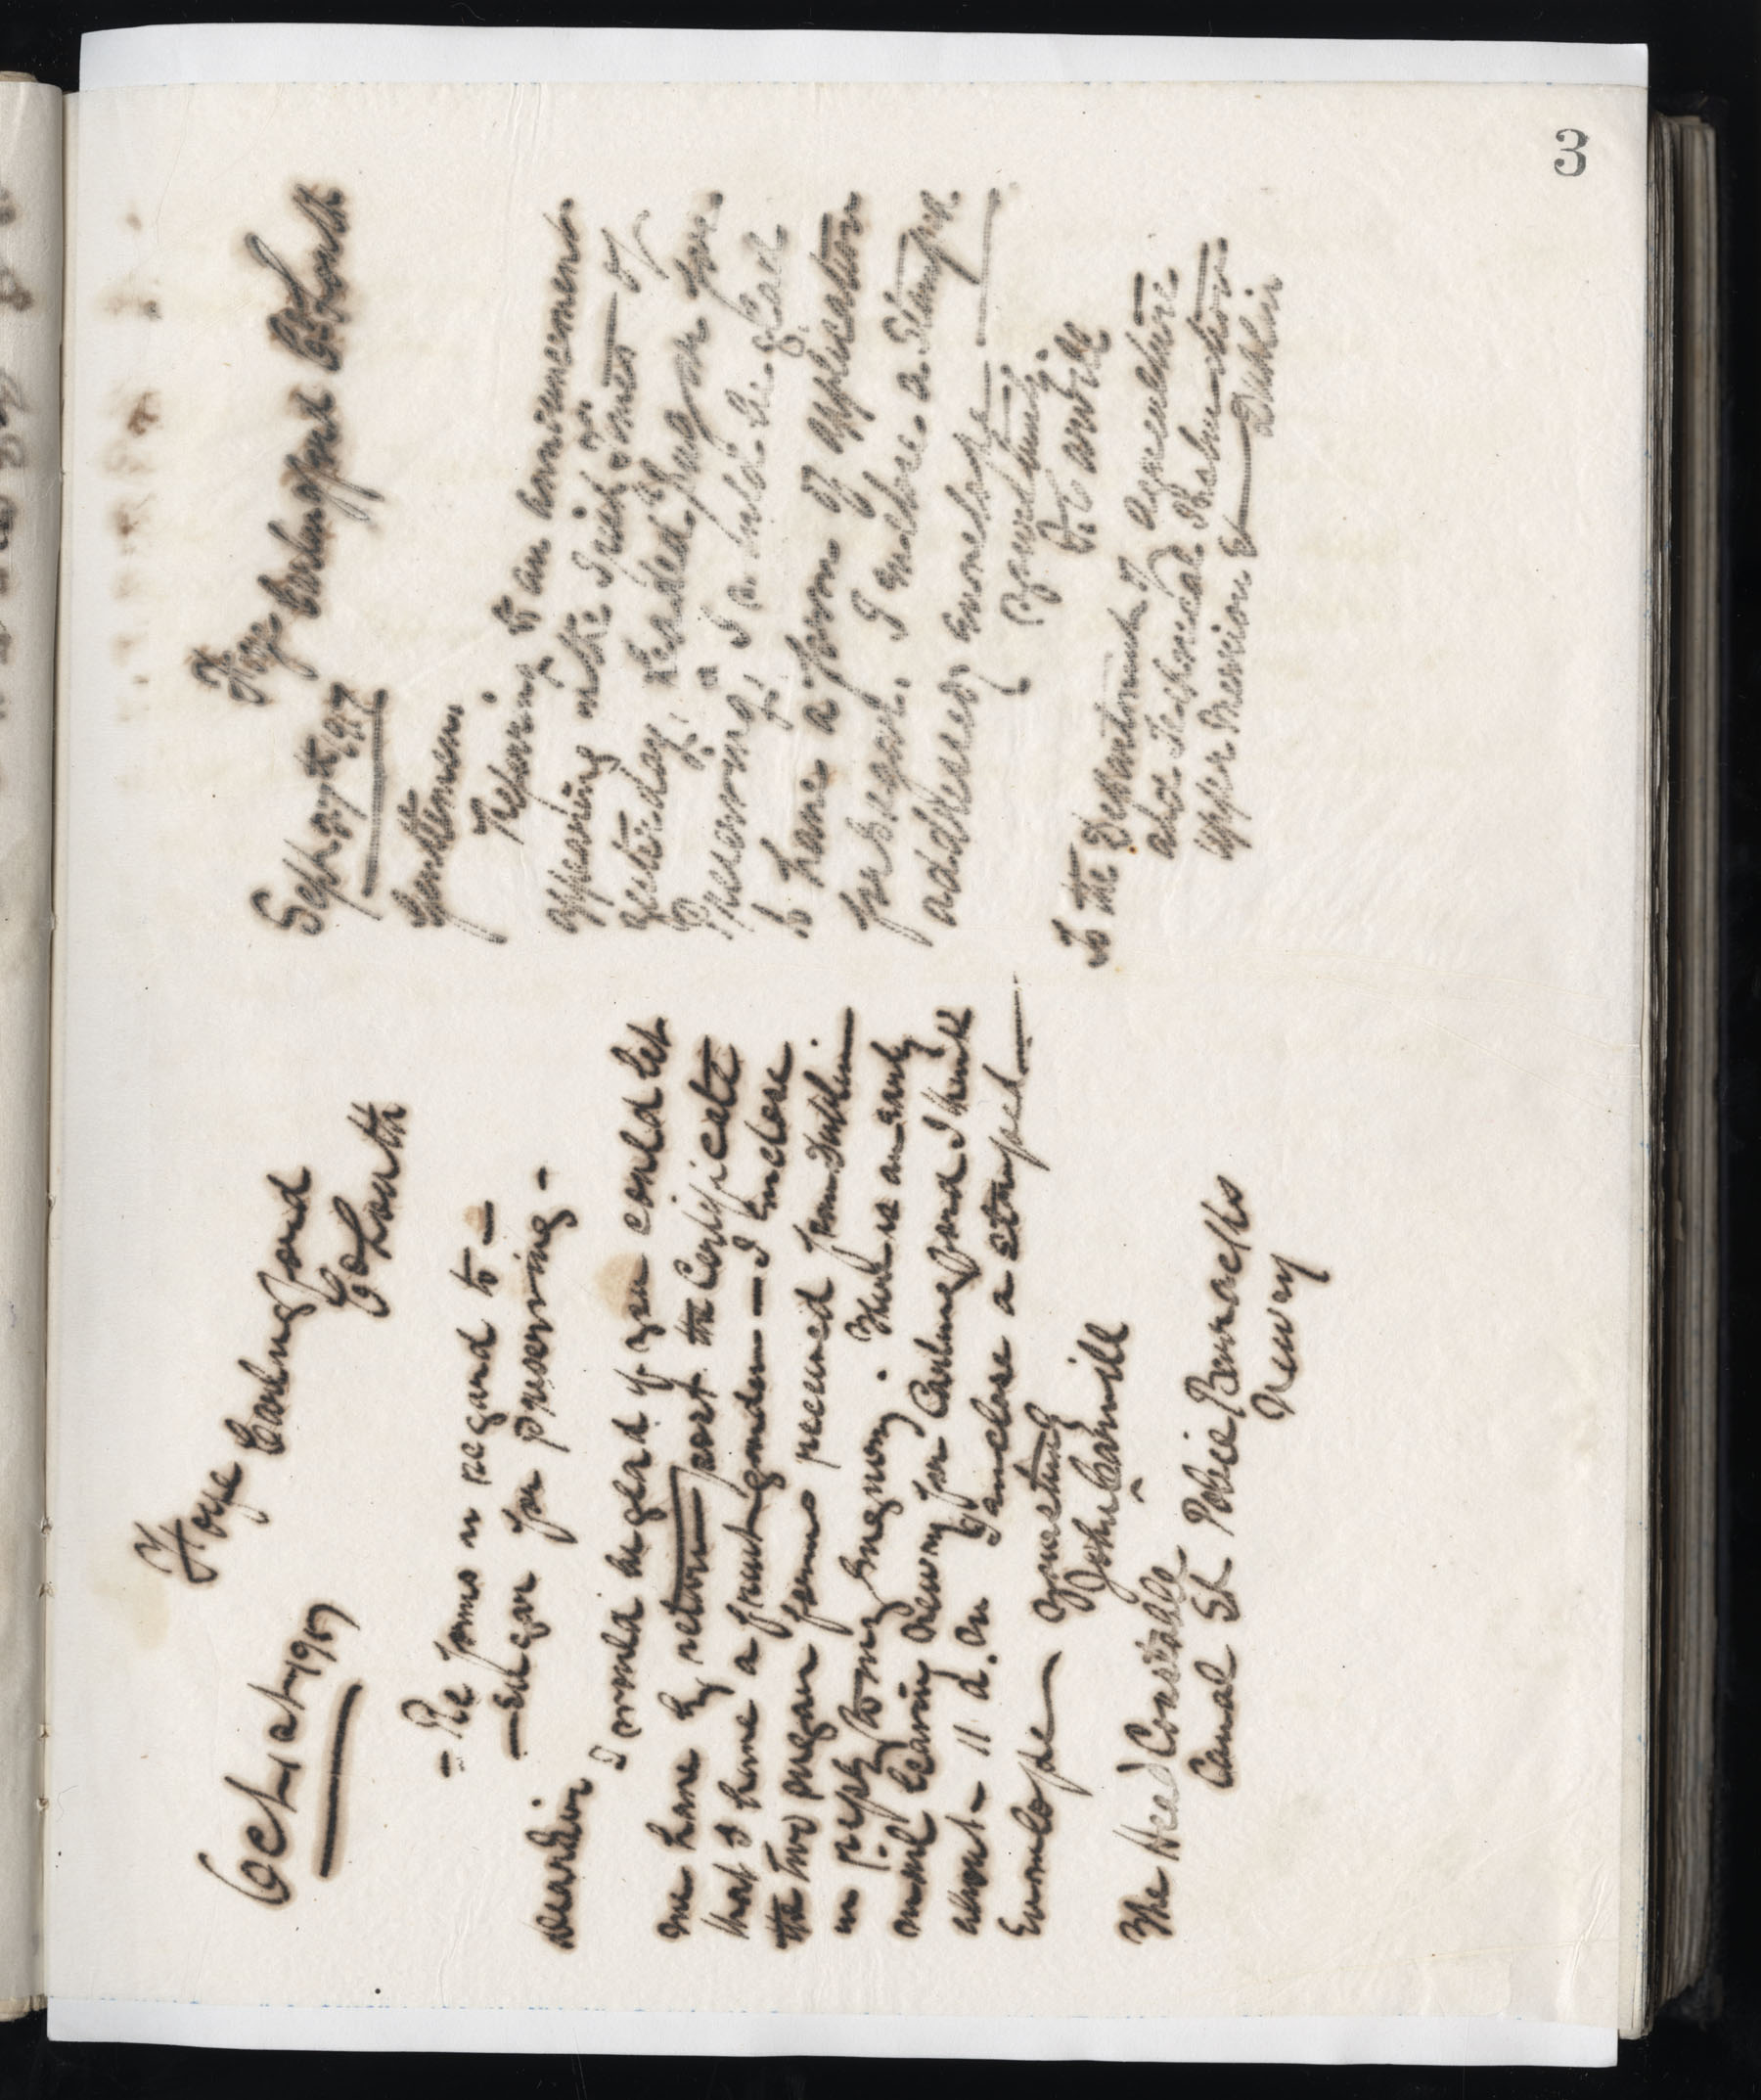 3
Foye Carlingford
Co Louth
Oct 1st 1917
- Re forms in regard to -
- Sugar for preserving -
Dear Sir
I would be glad if you could let
me have by return post the Certificate
that I have a fruit garden - I Enclose
the two sugar forms received from Dublin
in reply to my Enquiry. There is an early
mail leaving Newry for Carlingford I think
about - 11 a.m I enclose a stamped
Envelope
Yours truly
John Carvill
The Head Constable
Canal St Police Barracks
Newry
Foye Carlingford Co Louth
Sept 1917
Gentlemen
Refering to an announcement
appearing in the Irish Times of
yesterday headed Sugar for
Preserving, I should be glad
to have a form of application
for same. I enclose a stamped
addressed envelope
Yours truly
J. Carvill
To the Department of Agriculture
and Technical Instruction
Upper Merrion St
Dublin